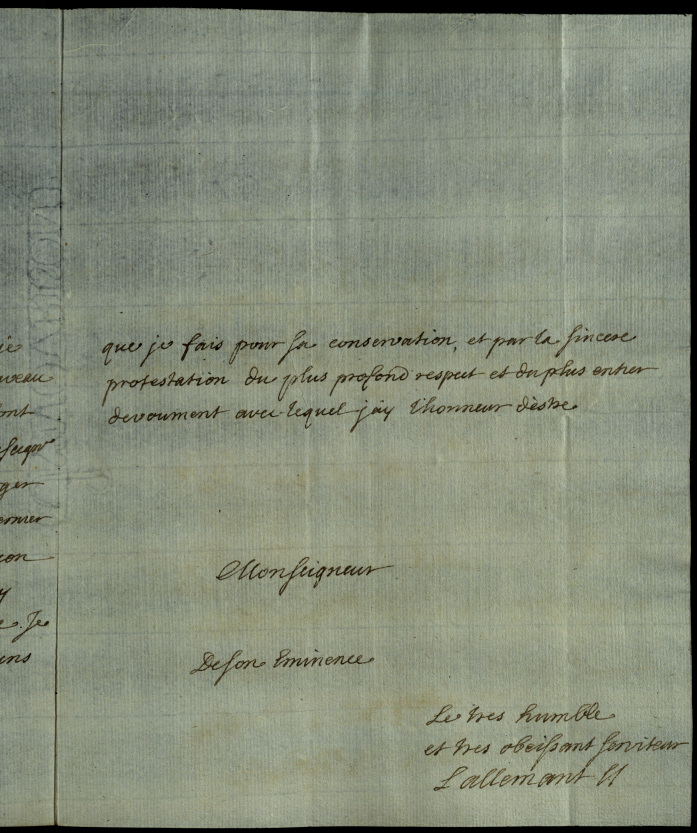 que je fais pour sa conservation, et par la sincere
protestation du plus profond respect et du plus entier
devoument avec lequel jáy l'honneur dèstre
Monseigneur
De son Eminence
Le tres humble
et tres obeissant serviteur
Lallemant
ie
uveau
ont
ger
ernier
ion
y
e. Je
ens